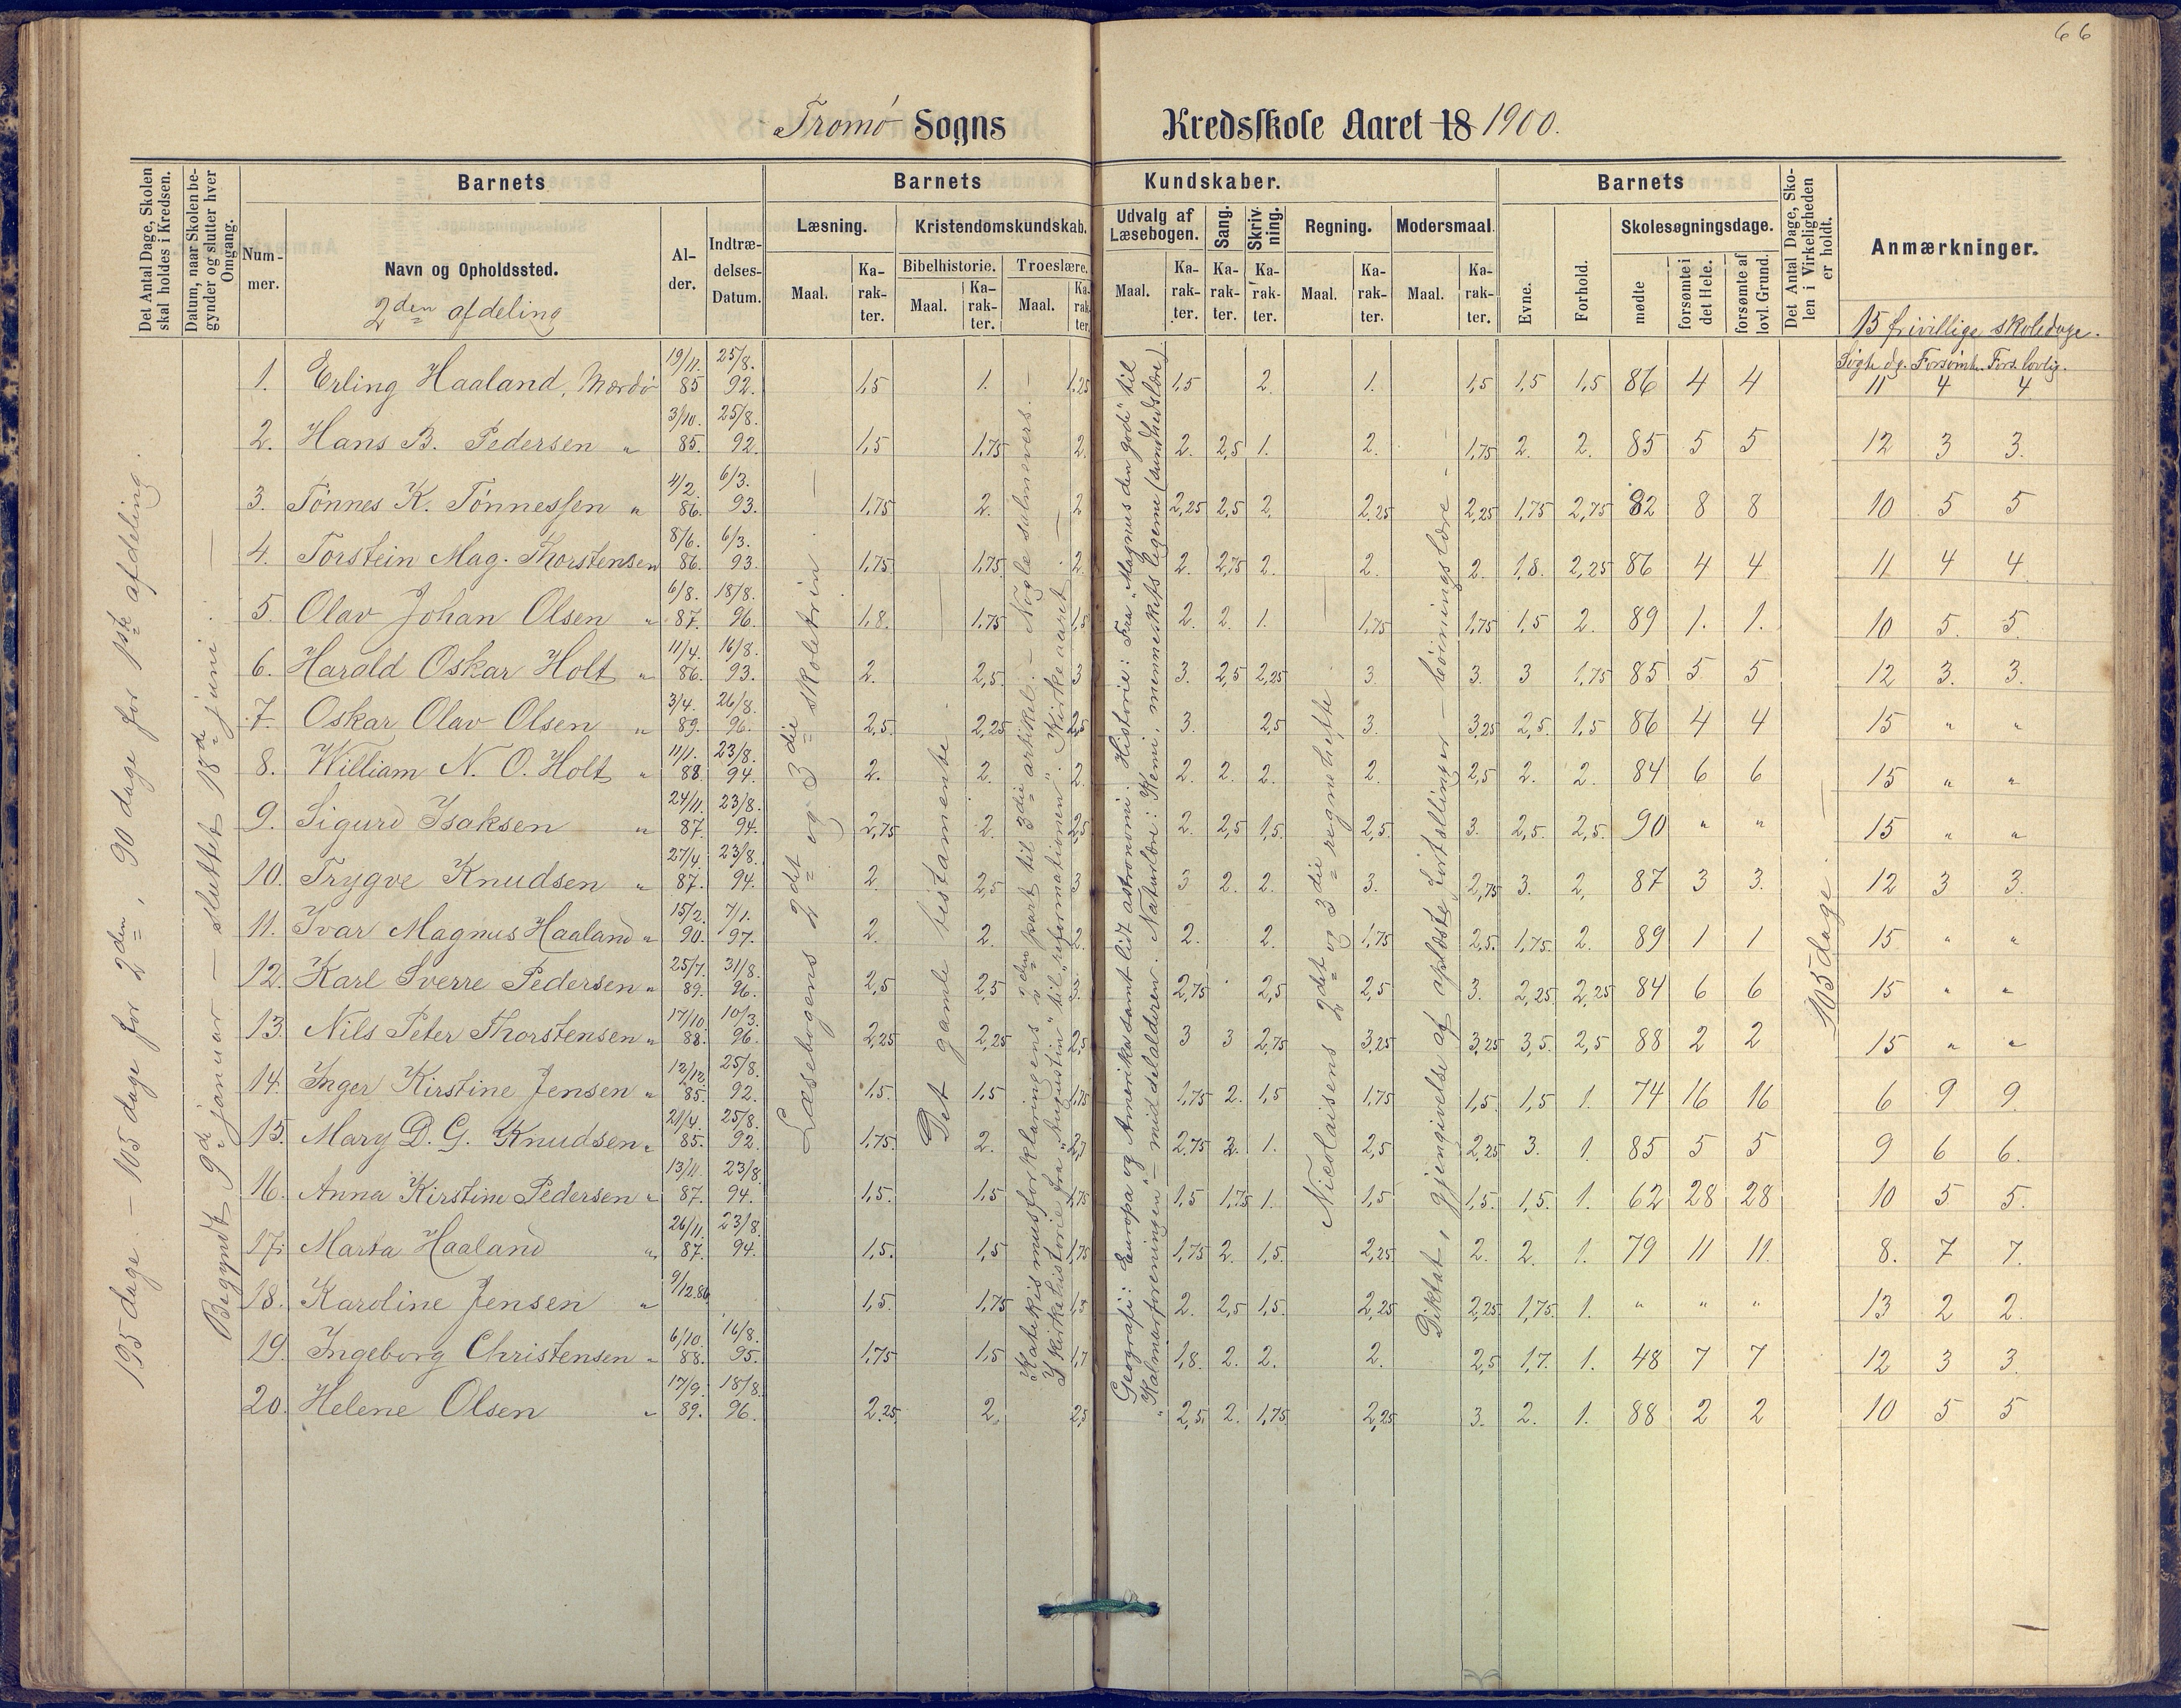 66
Tromø Sogns Kredsskole Aaret 18 1900.
Det Antal Dage, Skolen skal holdes i Kredsen.
Datum, naar Skolen begynder og slutter hver Omgang.
Barnets
Barnets Kundskaber.
Barnets
Det Antal Dage, Skolen i Virkeligheden er holdt.
Anmærkninger.
Nummer.
Navn og Opholdssted.
Alder.
Indtrædelses-Datum.
Læsning.
Kristendomskundskab.
Udvalg af Læsebogen.
Sang.
Skrivning.
Regning.
Modersmaal.
Evne.
Forhold.
Skolesøgningsdage.
Bibelhistorie.
Troeslære.
Maal. Karakter. Maal. Karakter. Maal. Karakter. Maal. Karakter. Karakter. Karakter. Maal. Karakter. Maal. Karakter.
mødte
forsømte i det Hele.
forsømte af lovl. Grund.
2den afdeling
15 frivillige skoledage.
Søgte dg. Forsømte. Fors. lovlig.
195 dage. – 105 dage for 2den, 90 dage for 1ste afdeling.
Begyndt 9d januar – sluttet 18d juni.
Læsebogens 2det og 3die skoletrin.
Det gamle testamente.
Katekismusforklaringens 2den part til 3die artikel. – Nogle salmevers. –
Kirkehistorie fra "Augustin" til "reformationen". Kirkeaaret –
Geografi: Europa og Amerika samt lidt astronomi. Historie: Fra "Magnus den gode" til
"Kalmarforeningen" – middelalderen. Naturlære: Kemi, menneskets legeme (sundhedslære).
Nicolaisens 2det og 3die regnehefte
Diktat, gjengivelse af oplæste fortællinger – bøiningslære –
105 dage.
1. Erling Haaland, Mærdø 19/11. 85 25/8. 92. 1,5 1. 1,25 1,5 2. 1. 1,5 1,5 1,5 86 4 4 11 4 4
2. Hans B. Pedersen " 3/10. 85. 25/8. 92. 1,5 1,75 2. 2. 2,5 1. 2. 1,75 2. 2. 85 5 5 12 3 3.
3. Tønnes K. Tønnessen " 4/2. 86. 6/3. 93. 1,75 2. 2 2,25 2,5 2. 2,25 2,25 1,75 2,75 82 8 8 10 5 5
4. Torstein Mag. Thorstensen 8/6. 86. 6/3. 93. 1,75 1,75 2. 2. 2,75 2. 2. 2. 1,8. 2,25 86 4 4 11 4 4.
5. Olav Johan Olsen " 6/8. 87. 18/8. 96. 1,8. 1,75 1,5 2. 2. 1. 1,75 1,75 1,5 2. 89 1. 1. 10 5. 5.
6. Harald Oskar Holt " 11/4. 86. 16/8. 93. 2. 2,5. 3 3. 2,5 2,25 3. 3. 3 1,75 85 5 5 12 3. 3.
7. Oskar Olav Olsen " 3/4. 89. 26/8. 96. 2,5. 2,25 2,5 3. 2,5 3. 3,25 2,5. 1,5 86 4 4 15 " "
8. William N. O. Holt " 11/1. 88. 23/8. 94. 2. 2. 2. 2. 2. 2. 2. 2,5 2. 2. 84 6 6 15 " "
9. Sigurd Isaksen " 24/11. 87. 23/8. 94. 2,75 2. 2,5 2. 2,5 1,5. 2,5. 3. 2,5. 2,5. 90 " " 15 " "
10. Trygve Knudsen " 27/4. 87. 23/8. 94. 2. 2,5 3 3 2. 2. 3. 2,75 3. 2, 87 3 3. 12 3 3.
11. Ivar Magnus Haaland " 15/2. 90. 7/1. 97. 2. 2. 2. 2. 2. 1,75 2,5. 1,75. 2. 89 1 1 15 " "
12. Karl Sverre Pedersen " 25/7. 89. 31/8. 96. 2,5 2,5 2,75 2,5 2,5 3. 2,25. 2,25 84 6 6 15 " "
13. Nils Peter Thorstensen " 17/10. 88. 10/3. 96. 2,25 2,25 2,5 3 3 2,75 3,25 3,25 3,5. 2,5 88 2 2 15 " "
14. Inger Kirstine Jensen " 12/12. 85. 25/8. 92. 1,5. 1,5 1,75 1,75 2. 1,5 1,75 1,5. 1,5 1. 74 16 16 6 9 9.
15. Mary D. G. Knudsen " 21/4. 85. 25/8. 92. 1,75. 2. 2,75 2. 1. 2,5 2,25 3. 1. 85 5 5 9 6 6.
16. Anna Kirstine Pedersen " 13/11. 87. 23/8. 94. 1,5. 1,5 1,75 1,5 1,75 1. 1,5 1,5. 1,5. 1. 62 28 28 10 5 5.
17. Marta Haaland " 26/11. 87. 23/8. 94. 1,5. 1,5 1,75 1,75 2. 1,5. 2,25. 2. 2. 1. 79 11 11. 8. 7 7.
18. Karoline Jensen " 9/12.86 1,5. 1,75 1,5 2. 2,5 1,5. 2,25 2,25 1,75. 1. " " " 13 2 2.
19. Ingeborg Christensen " 6/10. 88. 16/8. 95. 1,75 1,5 1,7 1,8. 2. 2. 2. 2,5 1,7. 1. 48 7 7 12 3 3.
20. Helene Olsen " 17/9. 89. 18/8. 96. 2,25 2. 2,5 2,5. 2. 1,75 2,25 3. 2. 1. 88 2 2 10 5 5